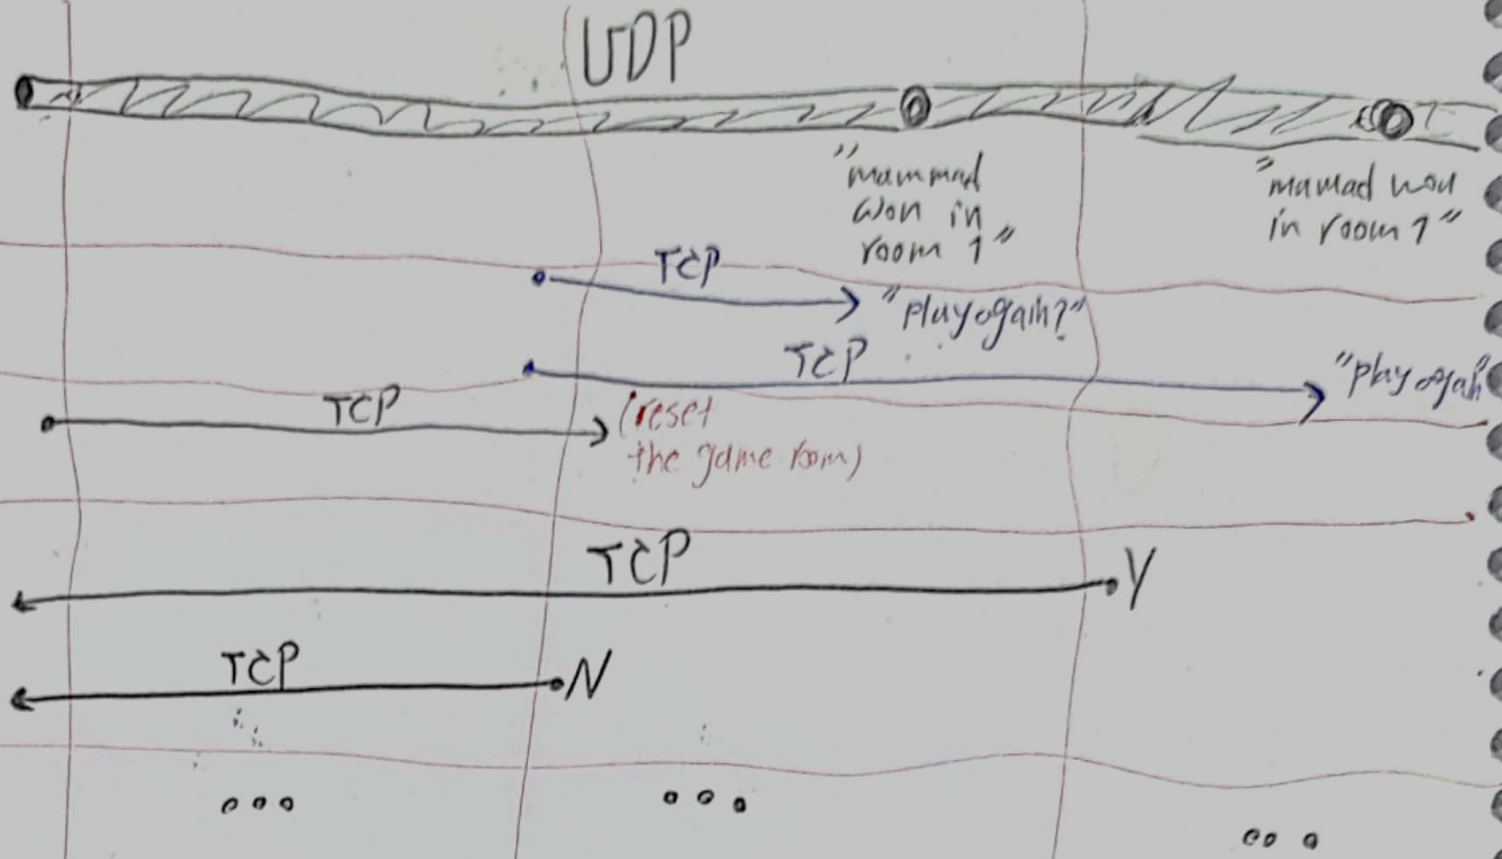 UDP
"mammad
won in
room 1"
"mamad won
in room 1"
TCP
"play again?"
TCP
"play again"
TCP
(reset
the game room)
TCP
Y
TCP
N